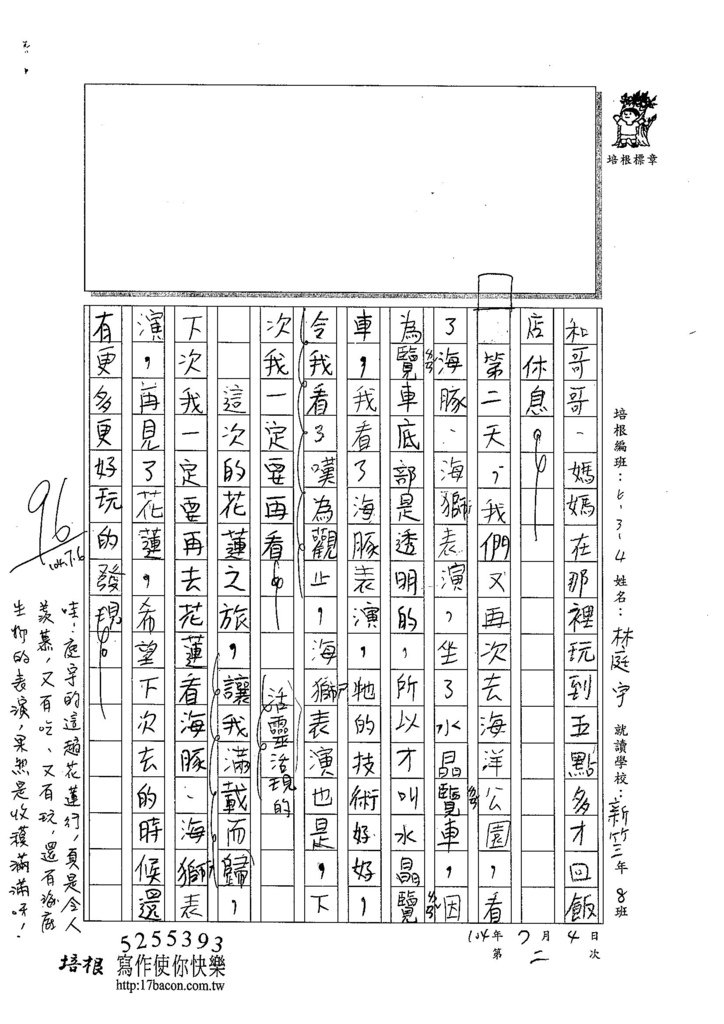 培根標章
培根編班：ㄊ、3-4 姓名：林庭宇 就讀學校：新竹三年8班
104年7月4日
第二次
和哥哥、媽媽在那裡玩到五點多才回飯
店休息。
第二天，我們又再次去海洋公園，看
了海豚、海獅表演，坐了水晶覽車，因
為覽車底部是透明的，所以才叫水晶覽
車，我看了海豚表演，牠的技術好好，
令我看了嘆為觀止，海獅表演也是，下
次我一定要再看。
活靈活現的
這次的花蓮之旅，讓我滿載而歸，
下次我一定要再去花蓮看海豚、海獅表
演，再見了花蓮，希望下次去的時候還
有更多更好玩的發現。
96
104.7.6
哇！庭宇的這趟花蓮行，真是令人
羨慕，又有吃、又有玩，還有海底
生物的表演，果然是收穫滿滿呀！
5255393
培根 寫作使你快樂
http:17bacon.com.tw